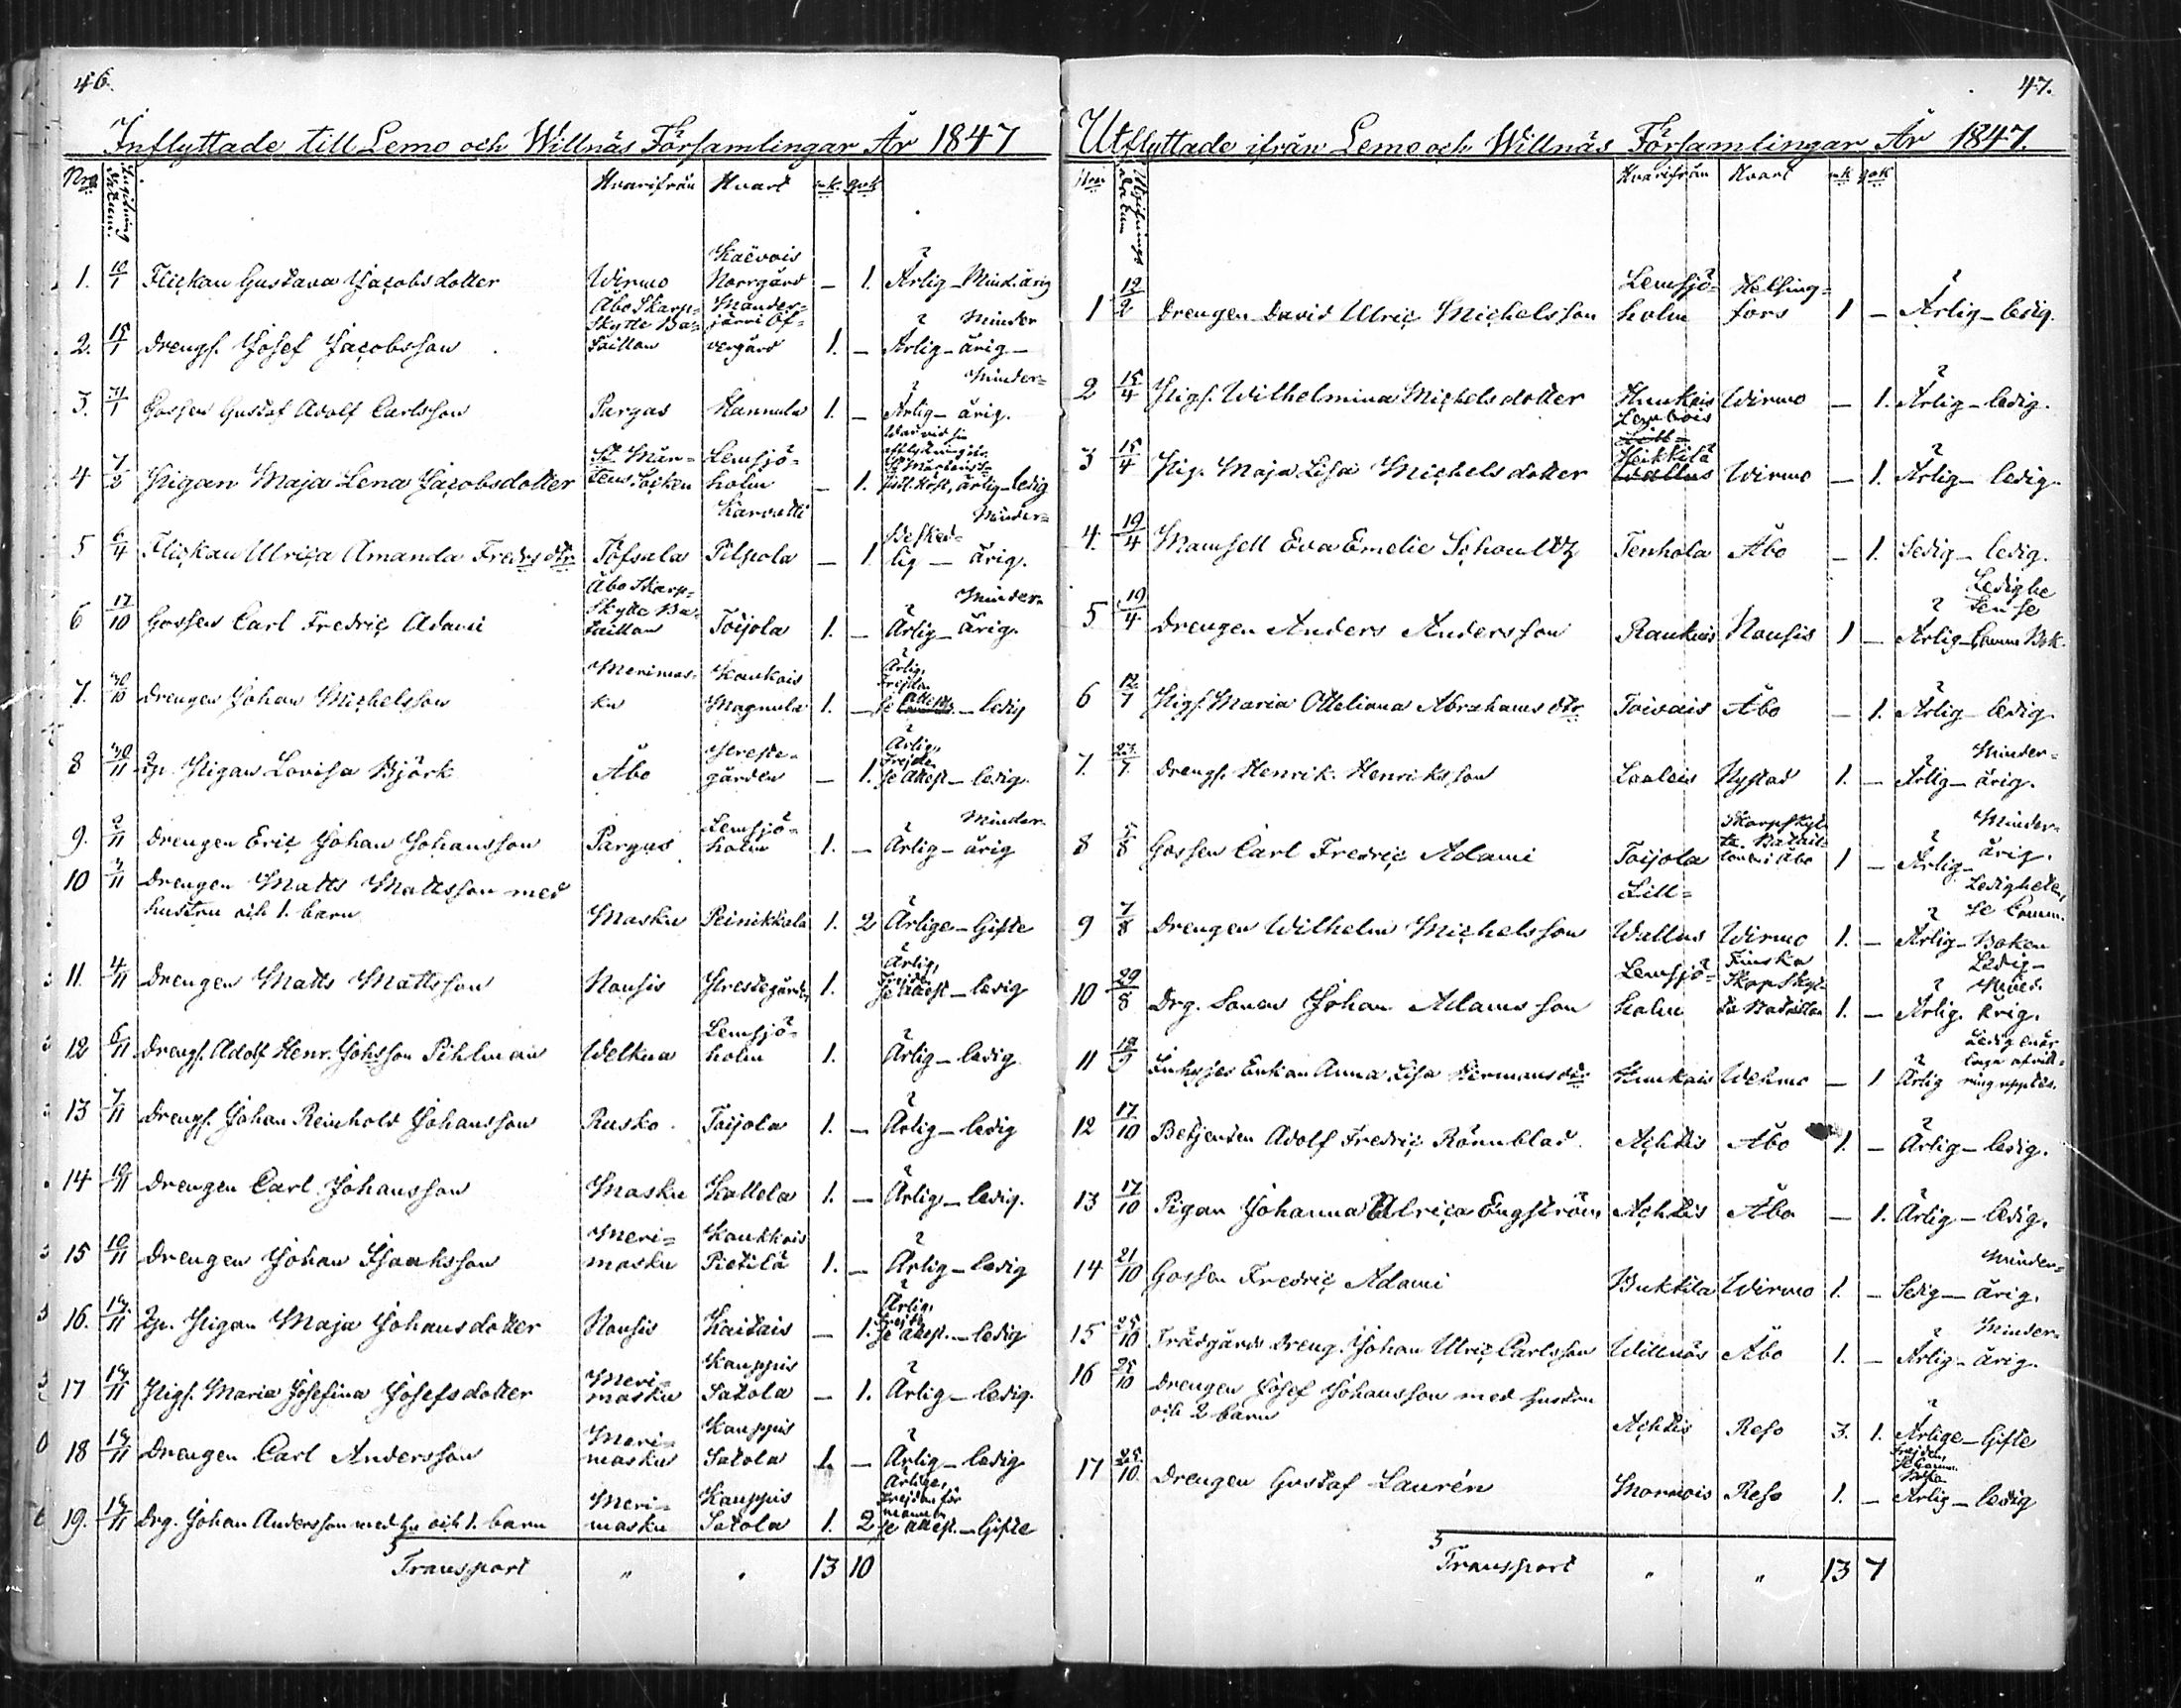 46.
Inflyttade till Lemo och Willnäs Församlingar År 1847
Nro Datum. Hvarifrån Hvart mk. qvk.
1. 10/1 Flickan Gustava Jacobsdotter Wirmo Kaevois Norrgård — 1. Ärlig — Mind.årig
2. 15/1 Drengs. Josef Jacobsson Åbo Skarp= skytte Ba= taillon Mander= järvi Öf= vergård 1. — Ärlig — Minder årig —
3. 31/1 Gossen Gustaf Adolf Carlsson Pargas Hannula 1. — Ärlig — Minder= årig.
4 7/2 Pigan Maja Lena Jacobsdotter St Mår= tens Socken Lemsjö= holm — 1. ärlig — ledig
5 6/4 Flickan Ulrica Amanda Fredrs dtr Töfsala Karvatti Pilpola — 1. Besked= lig — Minder= årig.
6 17/10 Gossen Carl Fredric Adami Åbo Skarp= skytte Ba= taillon Toijola 1. — Ärlig — Minder= årig.
7. 30/10 Drengen Johan Michelsson Merimas= ku Kaukois Magnula 1. — Ärlig, Frejden se Attest. — ledig
8 30/11 Pigan Lovisa Björk Åbo Preste= gården — 1. Ärlig, Frejden se attest — ledig.
9. 2/11 Drengen Eric Johan Johansson Pargas Lemsjö= holm 1. — Ärlig — Minder= årig
10 3/11 Drengen Matts Mattsson med
hustru och 1. barn Masku Peinikkala 1. 2 Ärlige — Gifte
11. 4/11 Drengen Matts Mattsson Nousis Prestegården 1. Ärlig, Frejden se attest — ledig
12 6/11 Drengs. Adolf Henr. Johsson Pihlman Welkua Lemsjö= holm 1. Ärlig — ledig.
13 7/11 Drengs. Johan Reinhold Johansson Rusko. Toijola 1. — Ärlig — ledig
14 10/11 Drengen Carl Johansson Masku Kallela 1. — Ärlig — ledig.
15 10/11 Drengen Johan Isaaksson Meri= masku Kaukkois Pietilä 1. — Ärlig — ledig
16. 14/11 Pigan Maja Johansdotter Nousis Kaitais — 1. Ärlig, Frejd. se attest. — ledig
17 14/11 Pigs. Maria Josefina Josefsdotter Meri= masku Kauppis Satola — 1. Ärlig — ledig.
18 14/11 Drengen Carl Andersson Meri= masku Kauppis Satola 1. — Ärlig — ledig
19. 14/11 Drg. Johan Andersson med hu och 1. barn Meri= masku Kauppis Satola 1. 2 Ärlige, Frejden för mannen se attest. — Gifte
Transport " " 13 10
47.
Utflyttade ifrån Lemo och Willnäs Församlingar År 1847.
Nro Utgifnings datum Hvarifrån Hvart mk qvk
1 12/2 Drengen David Ulric Michelsson Lemsjö= holm Helsing= fors 1 — Ärlig — ledig.
2 15/4 Pigs. Wilhelmina Michelsdotter Kunkois Wirmo — 1. Ärlig — ledig.
3 15/4 Pig. Maja Lisa Michelsdotter Lembois Heikkilä Wallus Wirmo — 1. Ärlig — ledig.
4. 19/4 Mamsell Eva Emelie Schoultz Tenhola Åbo — 1. Sedig — ledig.
5 19/4 Drengen Anders Andersson Raukais Nousis 1 — Ärlig — Ledighe ten se Comm Bok.
6 12/7 Pigs. Maria Otteliana Abrahams dtr Toivais Åbo — 1. Ärlig — ledig
7. 23/7. Drengs. Henrik Henriksson Laaleis Nystad 1. — Ärlig — Minder= årig.
8 5/8 Gossen Carl Fredric Adami Toijola Skarpskyt te Batail lon i Åbo 1 — Ärlig — Minder= årig.
9 7/8 Drengen Wilhelm Michelsson Lill= Wallus Wirmo 1. — Ärlig — Ledigheten, se Comm. Boken
10 29/8 Drg. Sonen Johan Adamsson Lemsjö= holm Finska Skarpskyt te Bataillon 1. — Ärlig. Ledig — Minder årig.
11 19/9 Inhyses Enkan Anna Lisa Hermansdtr Kunkais Wehmo — 1 Ärlig
12 17/10 Betjenten Adolf Fredric Rönnblad. Achtis Åbo 1. — Ärlig — ledig.
13 17/10 Pigan Johanna Ulrica Engström Achtis Åbo — 1. Ärlig — ledig.
14 21/10 Gossen Fredric Adami Bukkila Wirmo 1. — Sedig — Minder= årig.
15 25/10 Trädgårds dreng Johan Ulric Carlsson Willnäs Åbo 1. — Ärlig — Minder= årig.
16 25/10 Drengen Josef Johansson med hustru
och 2 barn Achtis Reso 3. 1. Ärlige — Gifte
17 25/10. Drengen Gustaf Laurén Mornois Reso 1. — Frejden, se Comm. Boken Ärlig — ledig
Transport " " 13 7